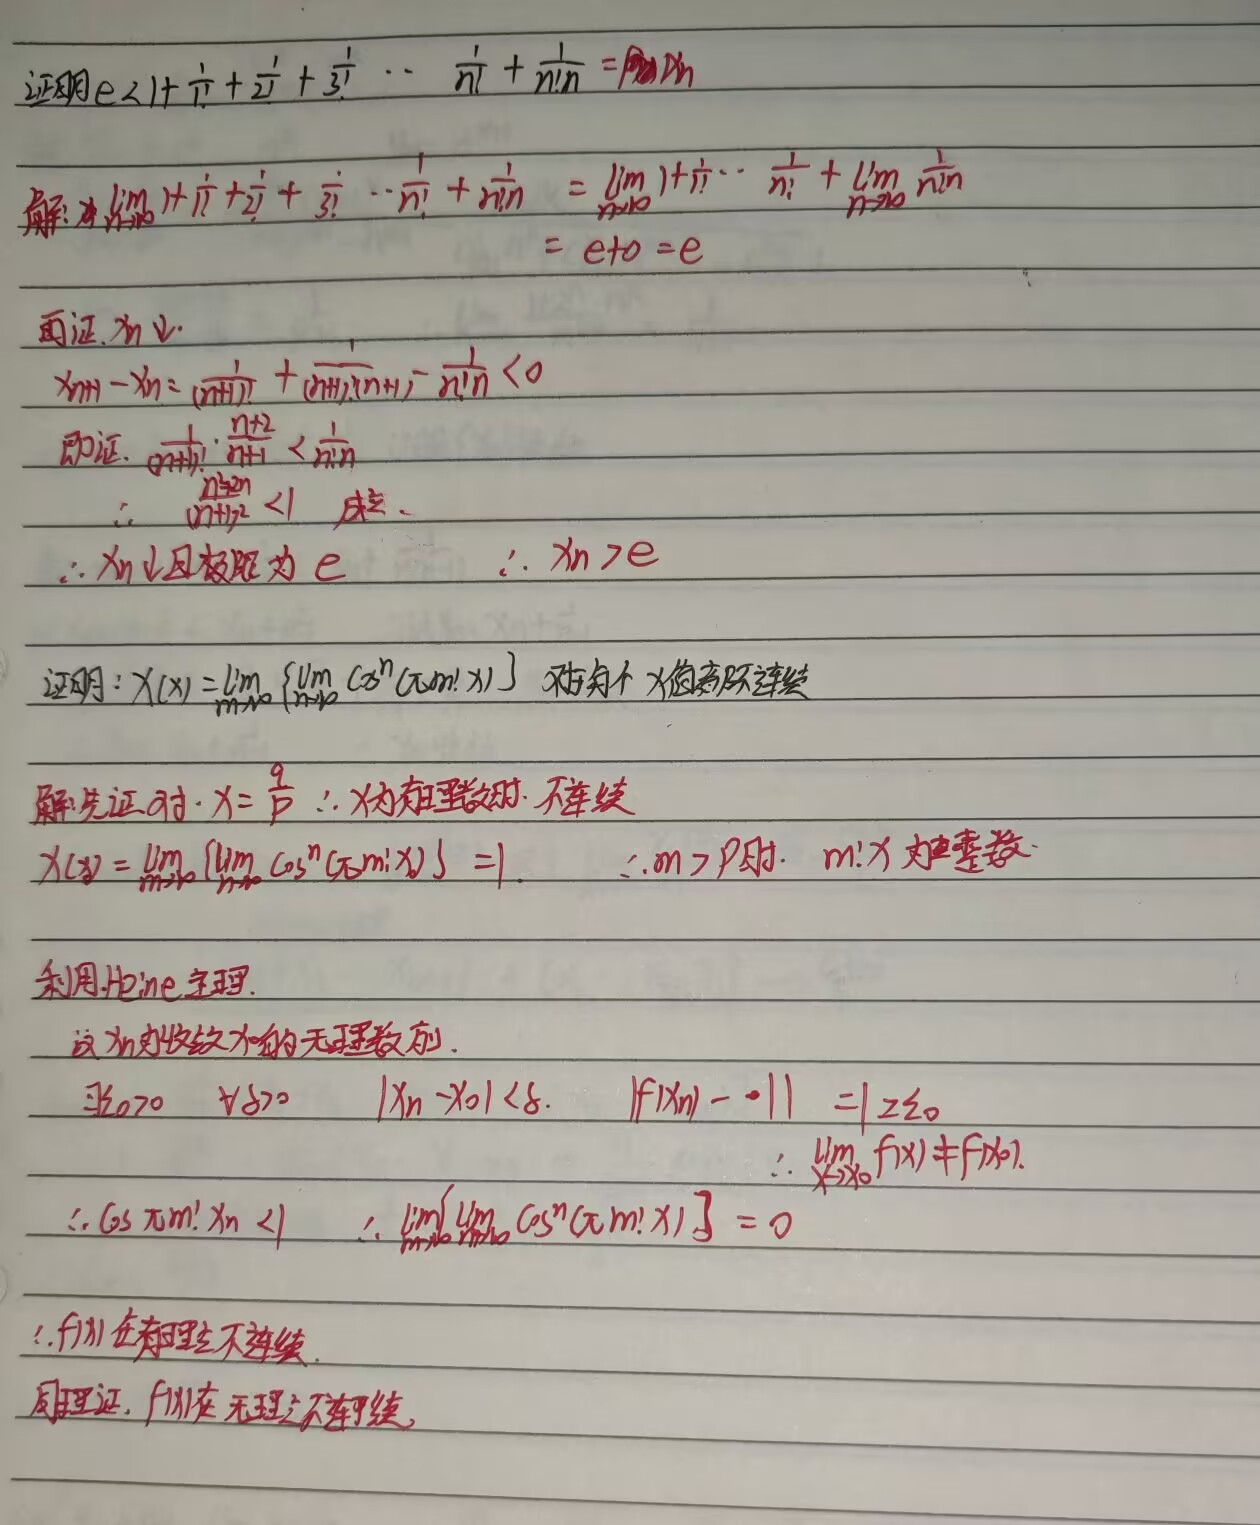 证明 e < 1 + 1/1! + 1/2! + 1/3! ·· 1/n! + 1/n!n = xn
解: lim n→∞ 1 + 1/1! + 1/2! + 1/3! ·· 1/n! + 1/n!n = lim n→∞ 1 + 1/1! ·· 1/n! + lim n→∞ 1/n!n
= e+0 = e
而证. xn ↓.
xn+1 − xn = 1/(n+1)! + 1/(n+1)!(n+1) − 1/n!n < 0
即证. 1/(n+1)! · n+2/n+1 < 1/n!n
∴ n²+2n/(n+1)² < 1 成立.
∴ xn ↓ 且极限为 e ∴ xn > e
证明: X(x) = lim m→∞ { lim n→∞ cosⁿ(πm!x) } 对于每个 x值都不连续
解: 先证 对. x = q/p ∴ x为有理数时. 不连续
X(x) = lim m→∞ { lim n→∞ cosⁿ(πm!x) } = 1. ∴ m > p时. m!x 为整数.
利用 Heine 定理.
设 xn 为收敛 x0 的无理数列.
∃ε0>0 ∀δ>0 |xn − x0| < δ. |f(xn) − 1| = 1 ≥ ε0
∴ lim x→x0 f(x) ≠ f(x0).
∴ cos πm! xn < 1 ∴ lim m→∞ { lim n→∞ cosⁿ(πm!x) } = 0
∴ f(x) 在有理点不连续.
同理证. f(x)在 无理点不连续.